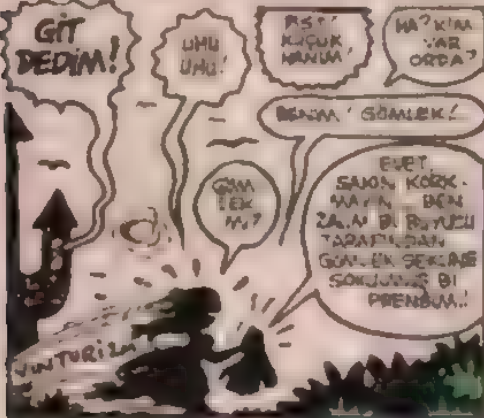 GİT
DEDİM!
UHU
UHU!
KÜÇÜK
HANIM!
HA? KİM
VAR
ORDA?
BENİM! GÖMLEK!
GÖM
LEK
Mİ?
EVET
SAKIN KORK-
MAYIN BEN
ZALİM Bİ BÜYÜCÜ
TARAFINDAN
GÖMLEK ŞEKLİNE
SOKULMUŞ Bİ
PRENSİM!